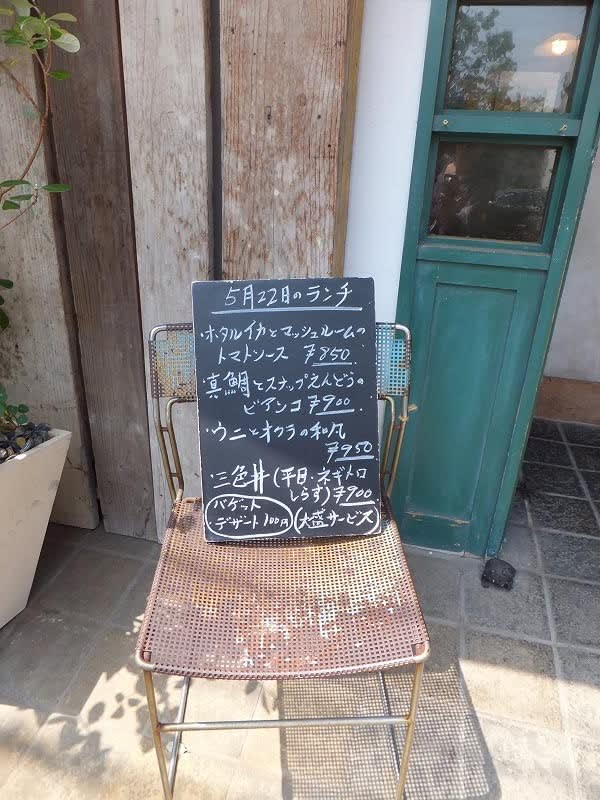 5月22日のランチ
・ホタルイカとマッシュルームの
トマトソース ¥850
・真鯛とスナップえんどうの
ビアンコ ¥900
・ウニとオクラの和風
¥950
・三色丼(平目・ネギトロ
しらす) ¥900
バゲット
・デザート100円
(大盛サービス)